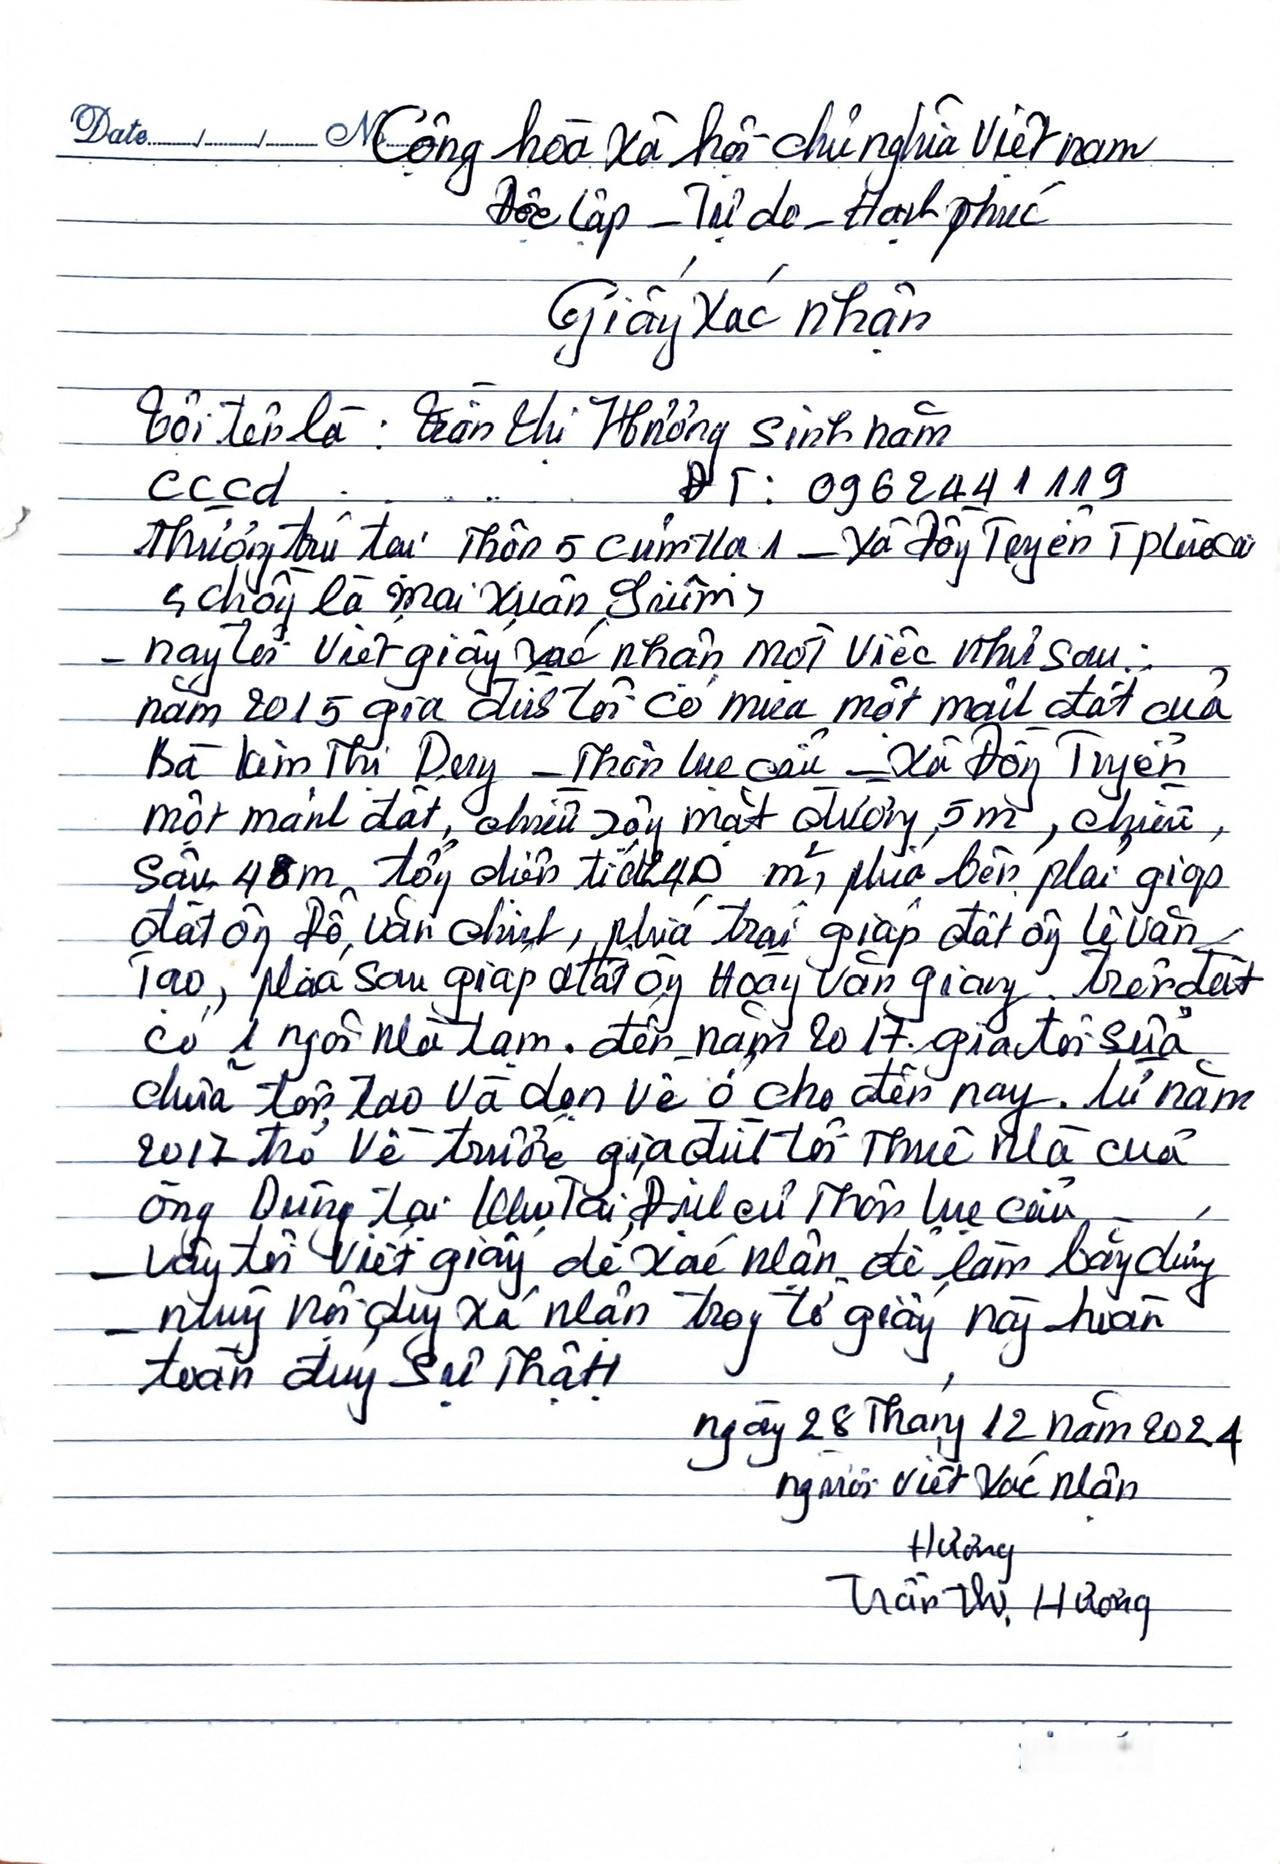 Date....../......./....... No
Cộng hòa xã hội chủ nghĩa Việt nam
Độc lập - Tự do - Hạnh phúc
Giấy xác nhận
Tôi tên là : Trần thị Hương sinh năm
cccd ĐT: 0962441119
Thường trú tại Thôn 5 cốc 1 - xã Đồng Tuyển TP Lào cai
chồng là Mai Xuân
- nay tôi viết giấy xác nhận một việc như sau :
năm 2015 gia đình tôi có mua một mảnh đất của
Bà Kim Thị Dung - Thôn lục cẩu - xã Đồng Tuyển
một mảnh đất, chiều rộng mặt đường 5m, chiều
sâu 48m tổng diện tích 240 m², phía bên phải giáp
đất ông Đỗ văn chính, phía trái giáp đất ông lê văn
Tạo, phía sau giáp đất ông Hoàng văn giang. trên đất
có 1 ngôi nhà tạm. đến năm 2017. gia tôi sửa
chữa tôn tạo và dọn về ở cho đến nay. từ năm
2017 trở về trước gia đình tôi thuê nhà của
ông Dũng tại khu Tái Định cư thôn lục cẩu
- vậy tôi viết giấy để xác nhận để làm bằng chứng
- những nội dung xác nhận trong tờ giấy này hoàn
toàn đúng sự thật
ngày 28 tháng 12 năm 2024
người viết xác nhận
Hương
Trần Thị Hương